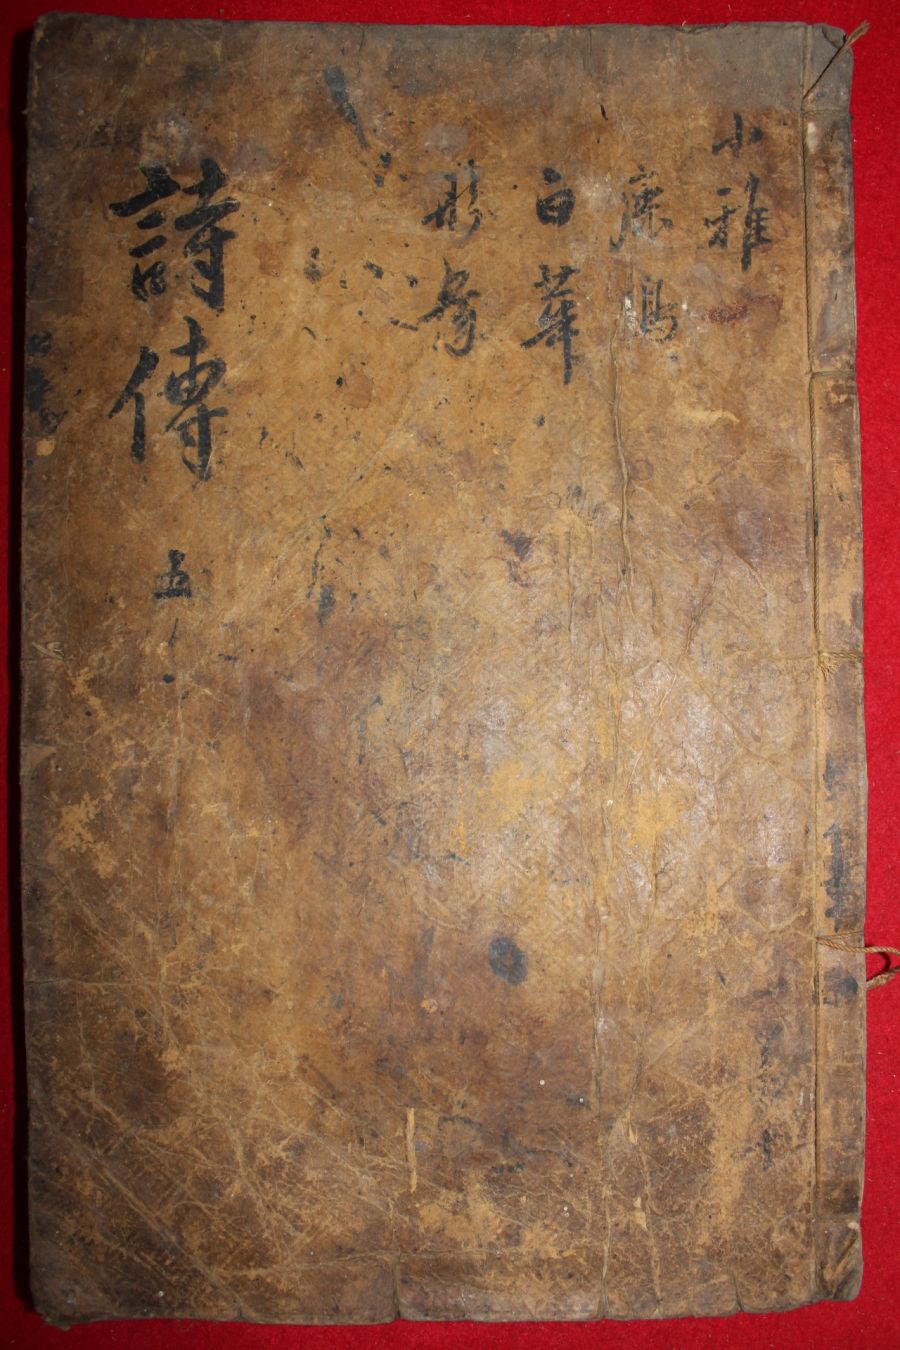 小雅
鹿鳴
白華
彤弓
詩傳 五